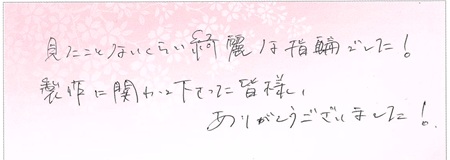 見たことないくらい綺麗な指輪でした!
製作に関わって下さった皆様、
ありがとうございました!